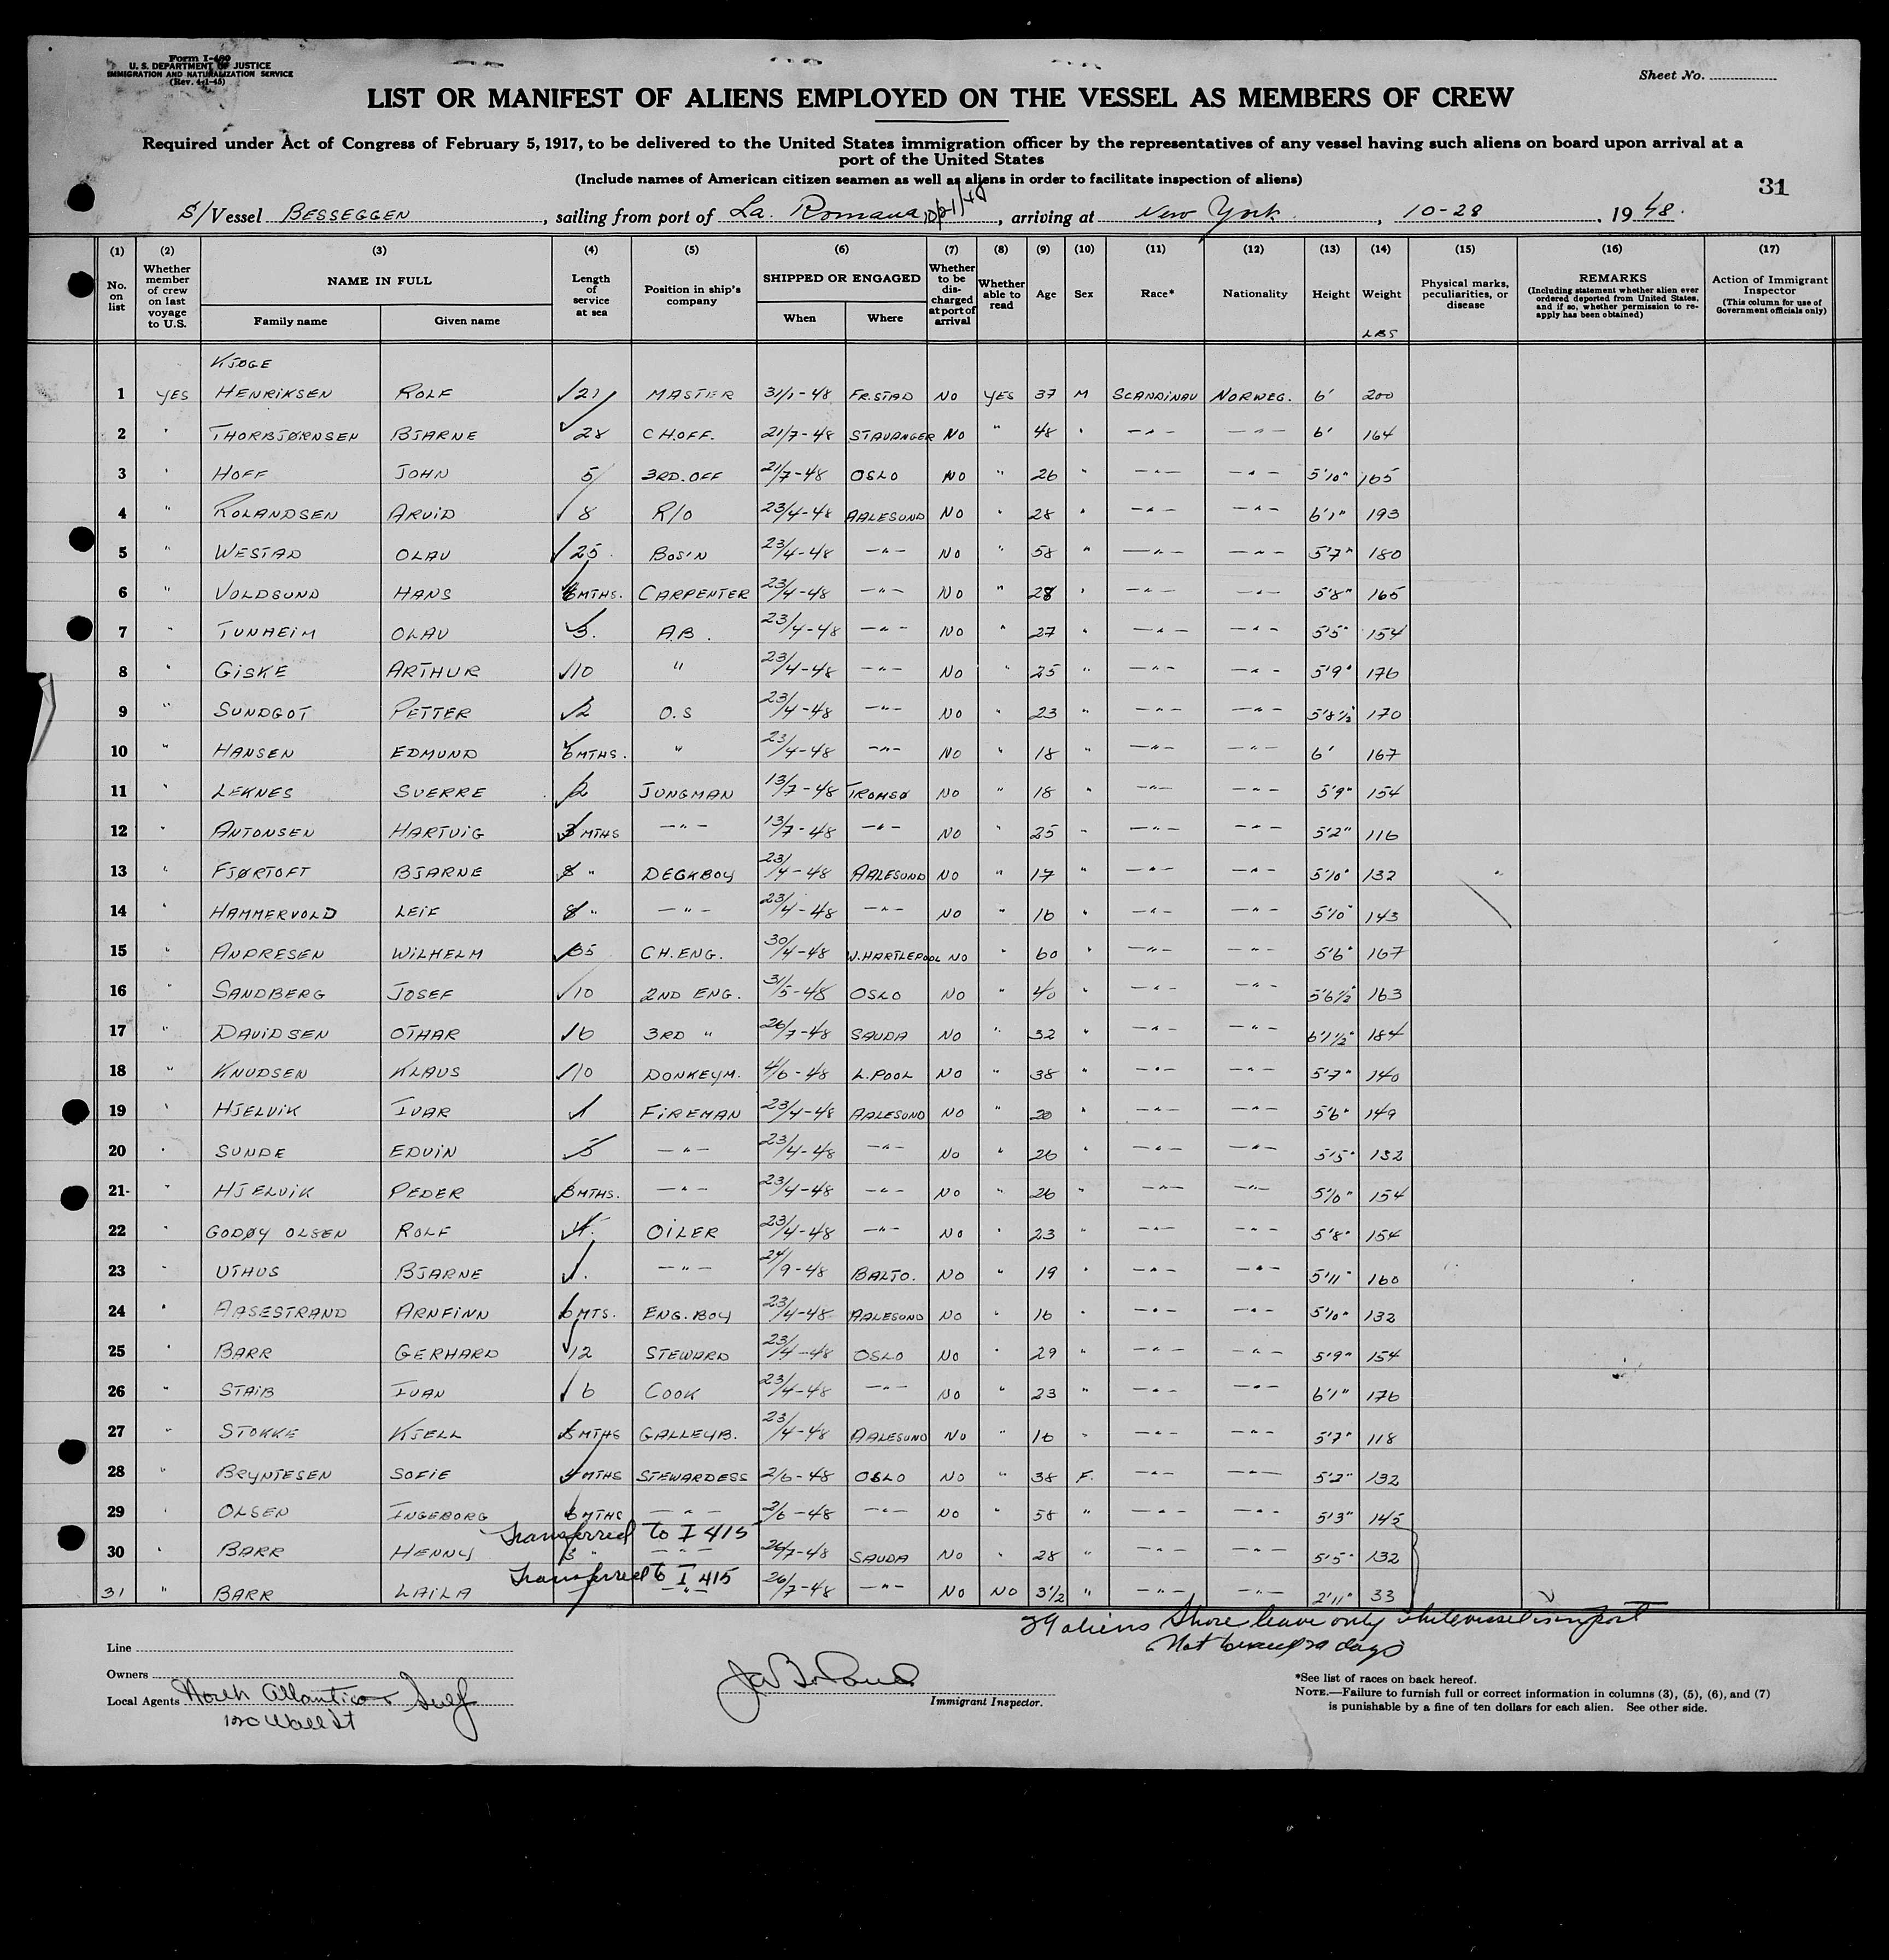 Form I-480
U. S. DEPARTMENT OF JUSTICE
IMMIGRATION AND NATURALIZATION SERVICE
(Rev. 4-1-45)
Sheet No.
LIST OR MANIFEST OF ALIENS EMPLOYED ON THE VESSEL AS MEMBERS OF CREW
Required under Act of Congress of February 5, 1917, to be delivered to the United States immigration officer by the representatives of any vessel having such aliens on board upon arrival at a
port of the United States
(Include names of American citizen seamen as well as aliens in order to facilitate inspection of aliens)
31
S/Vessel BESSEGGEN, sailing from port of La Romana 10/21/48, arriving at New York, 10-28, 1948.
(1) (2) (3) (4) (5) (6) (7) (8) (9) (10) (11) (12) (13) (14) (15) (16) (17)
No. on list
Whether member of crew on last voyage to U.S.
NAME IN FULL
Family name Given name
Length of service at sea
Position in ship's company
SHIPPED OR ENGAGED
When Where
Whether to be discharged at port of arrival
Whether able to read
Age
Sex
Race*
Nationality
Height
Weight
LBS
Physical marks, peculiarities, or disease
REMARKS
(Including statement whether alien ever ordered deported from United States, and if so, whether permission to reapply has been obtained)
Action of Immigrant Inspector
(This column for use of Government officials only)
KJØGE
1 YES HENRIKSEN ROLF 21 MASTER 31/1-48 FR.STAD NO YES 37 M SCANDINAV NORWEG. 6' 200
2 " THORBJØRNSEN BJARNE 28 CH.OFF. 21/7-48 STAVANGER NO " 48 " -"- -"- 6' 164
3 " HOFF JOHN 5 3RD.OFF 21/7-48 OSLO NO " 26 " -"- -"- 5'10" 165
4 " ROLANDSEN ARVID 8 R/O 23/4-48 AALESUND NO " 28 " -"- -"- 6'1" 193
5 " WESTAD OLAV 25 BOS'N 23/4-48 -"- NO " 58 " -"- -"- 5'7" 180
6 " VOLDSUND HANS 6MTHS. CARPENTER 23/4-48 -"- NO " 28 " -"- -"- 5'8" 165
7 " TUNHEIM OLAV 3. A.B. 23/4-48 -"- NO " 27 " -"- -"- 5'5" 154
8 " GISKE ARTHUR 10 " 23/4-48 -"- NO " 25 " -"- -"- 5'9" 176
9 " SUNDGOT PETTER 2 O.S 23/4-48 -"- NO " 23 " -"- -"- 5'8½" 170
10 " HANSEN EDMUND 6MTHS. " 23/4-48 -"- NO " 18 " -"- -"- 6' 167
11 " LEKNES SVERRE 2 JUNGMAN 13/7-48 TROMSØ NO " 18 " -"- -"- 5'9" 154
12 " ANTONSEN HARTVIG 3 MTHS -"- 13/7-48 -"- NO " 25 " -"- -"- 5'2" 116
13 " FJØRTOFT BJARNE 8 " DECKBOY 23/4-48 AALESUND NO " 17 " -"- -"- 5'10" 132
14 " HAMMERVOLD LEIF 8 " -"- 23/4-48 -"- NO " 16 " -"- -"- 5'10" 143
15 " ANDRESEN WILHELM 35 CH.ENG. 30/4-48 W.HARTLEPOOL NO " 60 " -"- -"- 5'6" 167
16 " SANDBERG JOSEF 10 2ND ENG. 31/5-48 OSLO NO " 40 " -"- -"- 5'6½" 163
17 " DAVIDSEN OTHAR 6 3RD " 26/7-48 SAUDA NO " 32 " -"- -"- 6'1½" 184
18 " KNUDSEN KLAUS 10 DONKEYM. 4/6-48 L.POOL NO " 38 " -"- -"- 5'7" 140
19 " HJELVIK IVAR 1 FIREMAN 23/4-48 AALESUND NO " 20 " -"- -"- 5'6" 149
20 " SUNDE EDVIN 5 -"- 23/4-48 -"- NO " 26 " -"- -"- 5'5" 132
21- " HJELVIK PEDER 8MTHS. -"- 23/4-48 -"- NO " 26 " -"- -"- 5'10" 154
22 " GODØY OLSEN ROLF 4. OILER 23/4-48 -"- NO " 23 " -"- -"- 5'8" 154
23 " UTHUS BJARNE -"- 24/9-48 BALTO. NO " 19 " -"- -"- 5'11" 160
24 " AASESTRAND ARNFINN 6 MTS. ENG. BOY 23/4-48 AALESUND NO " 16 " -"- -"- 5'10" 132
25 " BARR GERHARD 12 STEWARD 23/4-48 OSLO NO " 29 " -"- -"- 5'9" 154
26 " STAIB IVAN 6 COOK 23/4-48 -"- NO " 23 " -"- -"- 6'1" 176
27 " STOKKE KJELL MTHS GALLEYB. 23/4-48 AALESUND NO " 16 " -"- -"- 5'7" 118
28 " BRYNTESEN SOFIE 4MTHS STEWARDESS 2/6-48 OSLO NO " 38 F. -"- -"- 5'2" 132
29 " OLSEN INGEBORG 6 MTHS -"- 2/6-48 -"- NO " 58 " -"- -"- 5'3" 145
Transferred to I 415
30 " BARR HENNY 3 " -"- 26/7-48 SAUDA NO " 28 " -"- -"- 5'5" 132
Transferred to I 415
31 " BARR LAILA -"- 26/7-48 -"- NO NO 3½ " -"- -"- 2'11" 33
29 aliens Shore leave only while vessel is in port
Not to exceed 29 days
Line
Owners
Local Agents North Atlantic & Gulf
120 Wall St
Immigrant Inspector.
*See list of races on back hereof.
NOTE.—Failure to furnish full or correct information in columns (3), (5), (6), and (7)
is punishable by a fine of ten dollars for each alien. See other side.